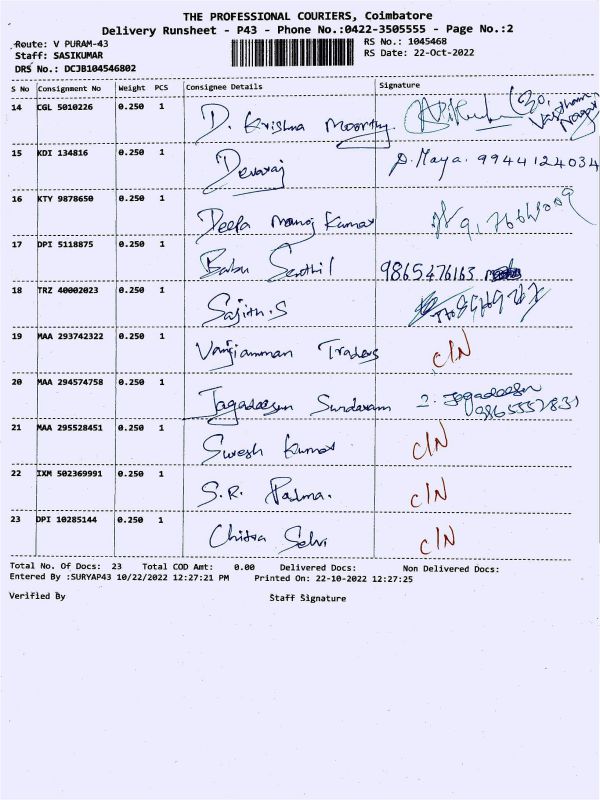 THE PROFESSIONAL COURIERS, Coimbatore
Delivery Runsheet - P43 - Phone No.:0422-3505555 - Page No.:2
Route: V PURAM-43 RS No.: 1045468
Staff: SASIKUMAR RS Date: 22-Oct-2022
DRS No.: DCJB104546802
S No Consignment No Weight PCS Consignee Details Signature
14 CGL 5010226 0.250 1 D. Krishna Moorthy
15 KDI 134816 0.250 1 Devaraj P. Maya. 9944124034
16 KTY 9878650 0.250 1 Deepa Manoj Kumar
17 DPI 5118875 0.250 1 Babu Senthil 9865476163
18 TRZ 40002023 0.250 1 Sajith.S
19 MAA 293742322 0.250 1 Vanjiamman Traders C/N
20 MAA 294574758 0.250 1 Jagadeesan Sundaram Jegadeesan
21 MAA 295528451 0.250 1 Suresh Kumar C/N
22 IXM 502369991 0.250 1 S.R. Padma. C/N
23 DPI 10285144 0.250 1 Chitra Selvi C/N
Total No. Of Docs: 23 Total COD Amt: 0.00 Delivered Docs: Non Delivered Docs:
Entered By :SURYAP43 10/22/2022 12:27:21 PM Printed On: 22-10-2022 12:27:25
Verified By Staff Signature